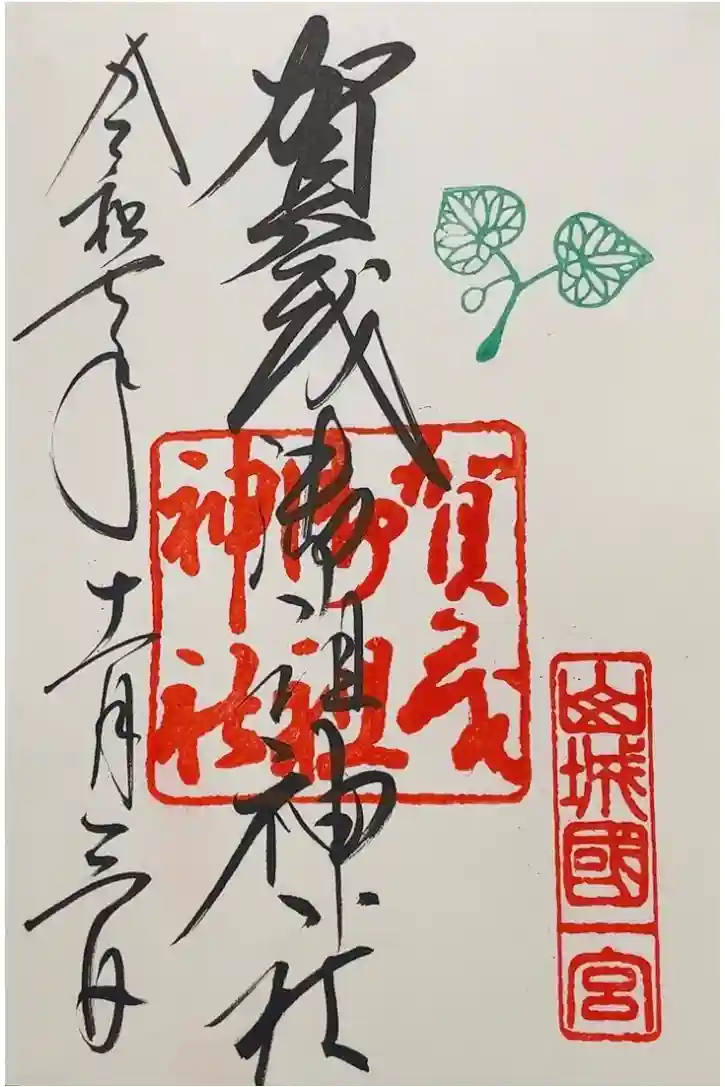 山城國一宮
賀茂御祖神社
賀茂
御祖
神社
令和七年十一月三日